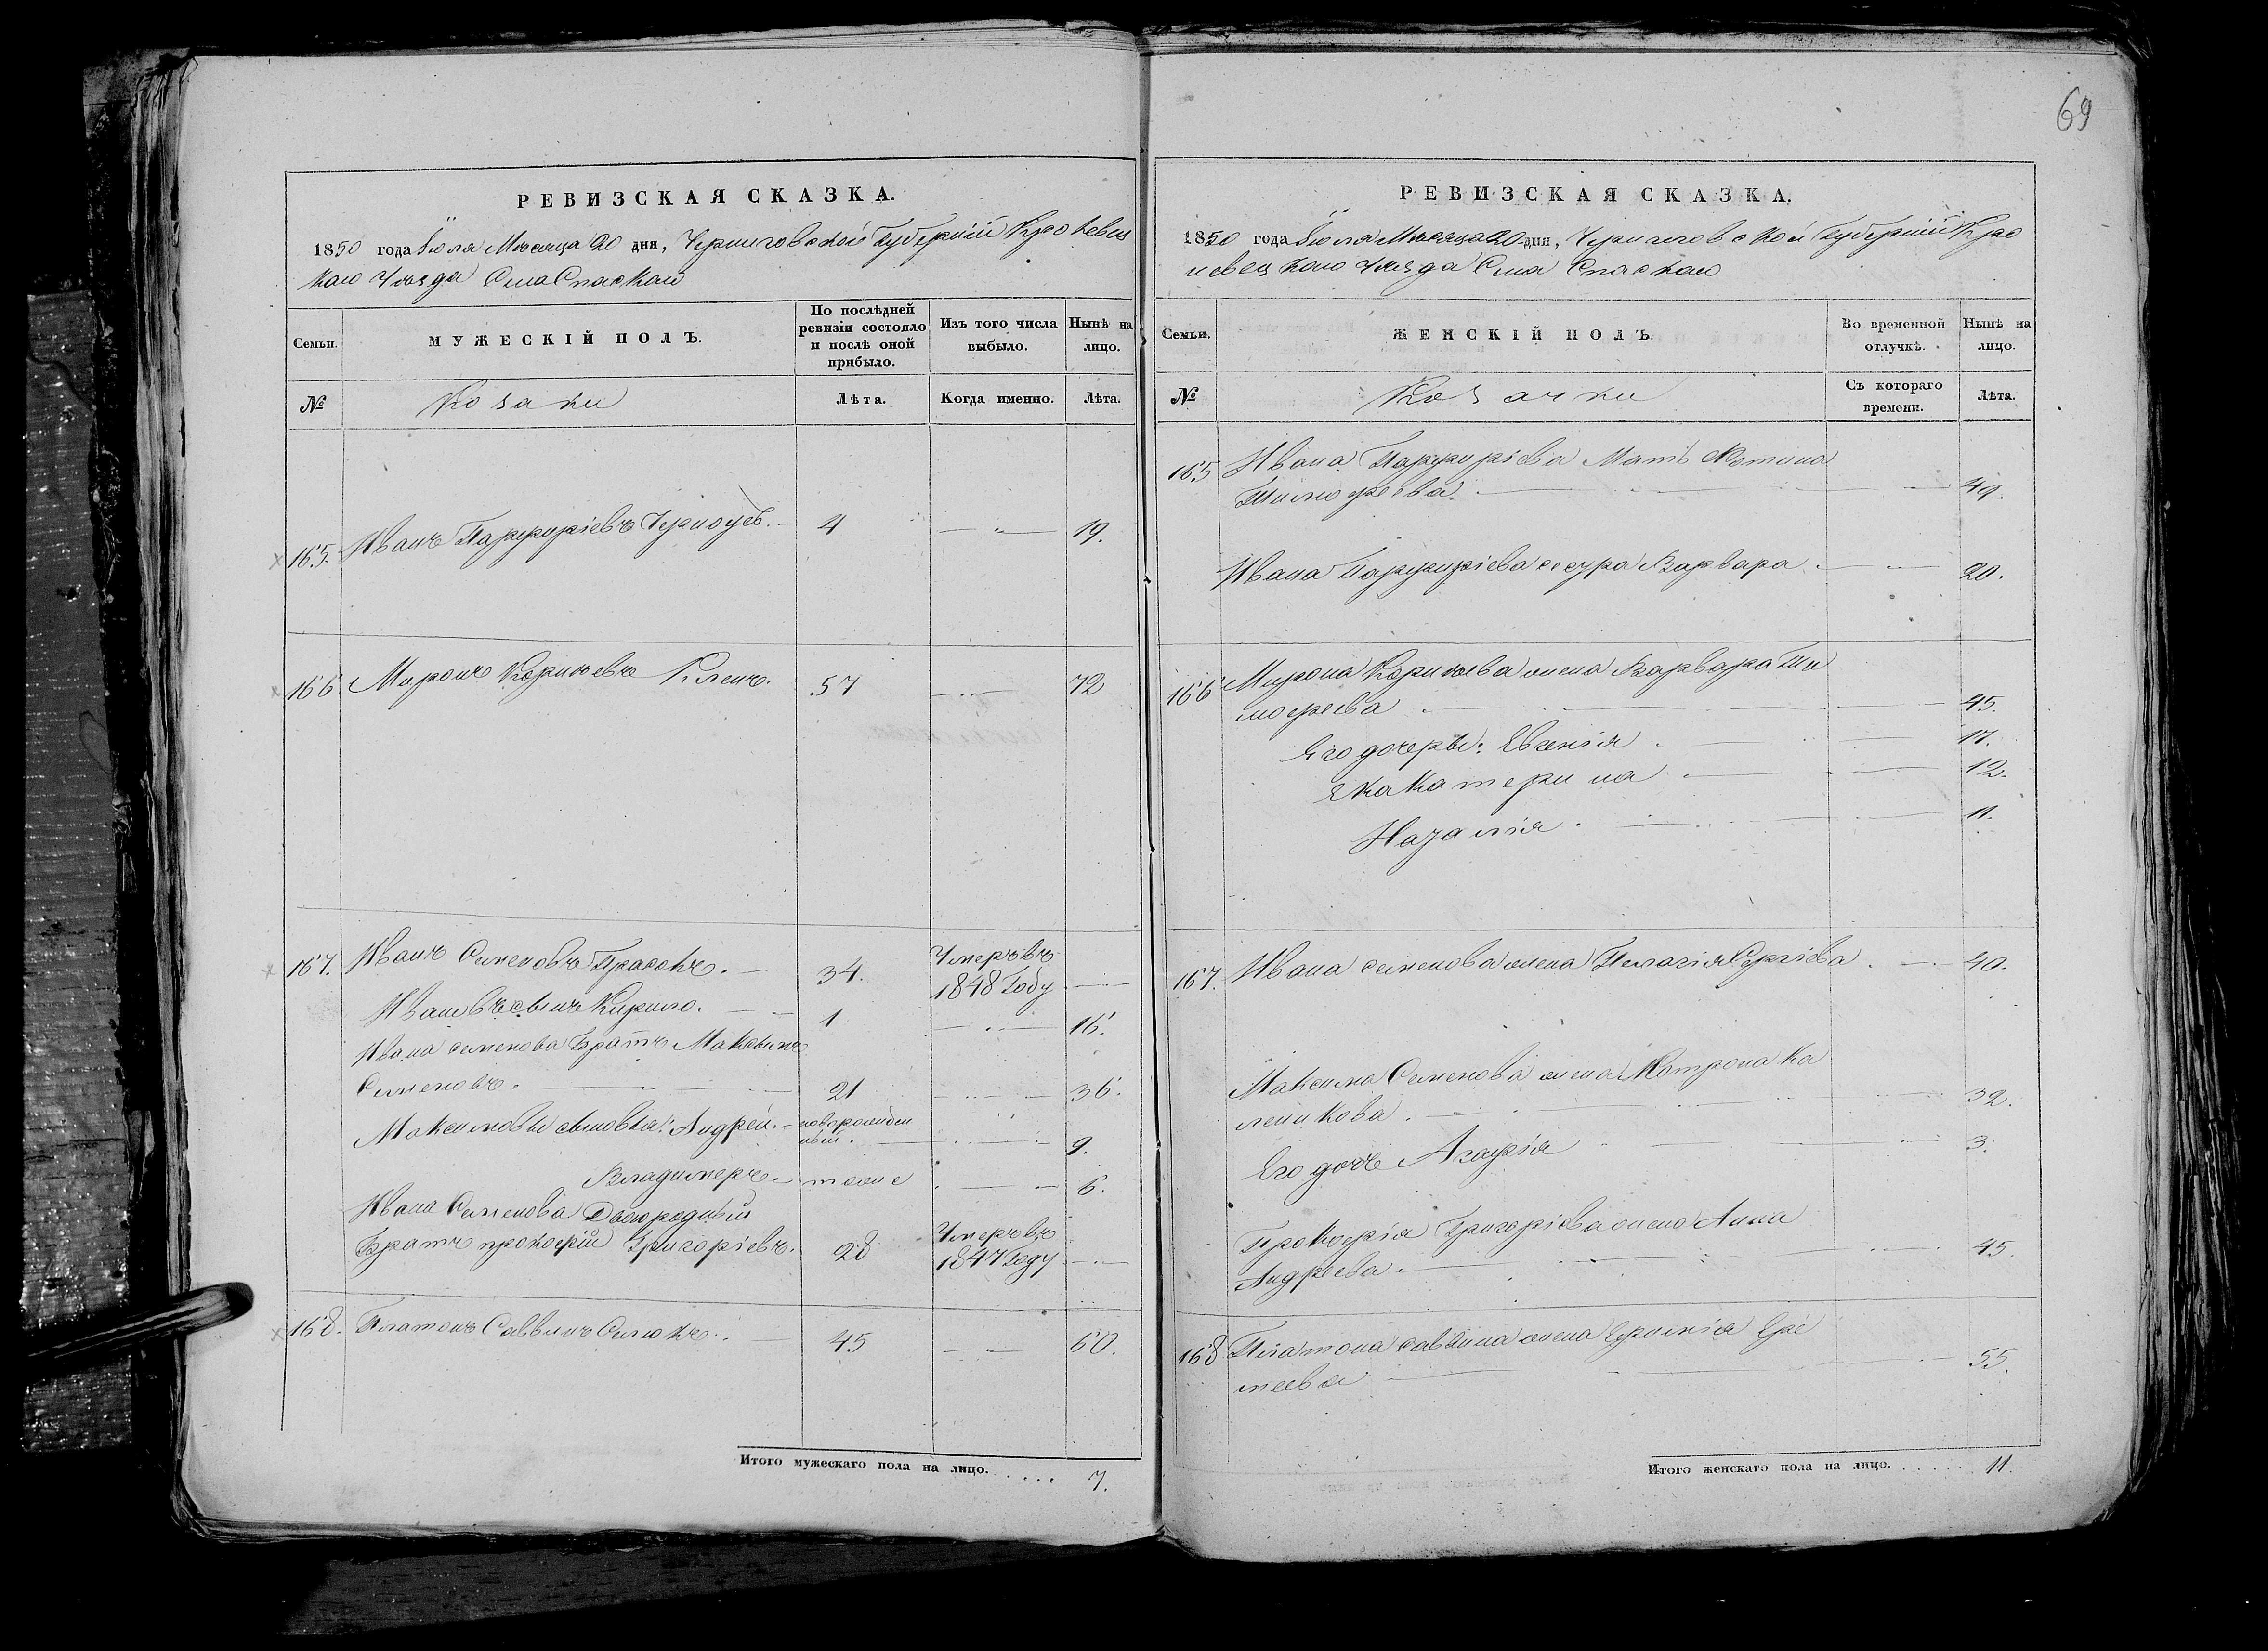 РЕВИЗСКАЯ СКАЗКА.
1850 года Іюля Месяца 20 дня, Черниговской Губерніи Кролевец
каго Уезда Села Спаскаго
Семьи.
МУЖЕСКІЙ ПОЛЪ.
По послѣдней ревизіи состояло и послѣ оной прибыло.
Изъ того числа выбыло.
Нынѣ на лицо.
№
Козаки
Лѣта.
Когда именно.
Лѣта.
165. Иванъ Парфиріевъ 4 19.
166 Миронъ Корнѣевъ Кленъ. 57 72
167. Иванъ Семеновъ Прасокъ. 34. Умеръ въ 1848 Году
Ивановъ сынъ Кирило. 1 16.
Ивана Семенова Братъ Максимъ
Семеновъ. 21 36.
Максимовы сыновья: Андрей. новорожден
ный. 9.
Владимеръ тоже 6.
Ивана Семенова Двоюродный
Братъ прокофій Григоріевъ. 28 Умеръ въ 1847 Году
168. Платонъ Саввинъ 45 60.
Итого мужескаго пола на лицо. . . . . . 7.
69
РЕВИЗСКАЯ СКАЗКА.
1850 года Іюля Месяца 20 дня, Черниговской Губерніи Кро
левецкаго Уезда Села Спаскаго
Семьи.
ЖЕНСКІЙ ПОЛЪ.
Во временной отлучкѣ.
Нынѣ на лицо.
№
Козачки
Съ котораго времени.
Лѣта.
165 Ивана Парфиріева Мать
Тимофеева. 49.
Ивана Парфиріева сестра Варвара. 20.
166 Мирона Корнѣева жена Варвара Ти
мофеева 45.
Его дочери: Евгенія 17.
Екатерина 12.
Наталія 11.
167. Ивана семенова жена Пелагія Сергіева. 40.
Максима Семенова жена Матрона Ка
леникова. 32.
Его дочь Агафія 3.
Прокофія Григоріева жена Анна
Андреева. 45.
168 Платона саввина жена Ефимія Ере
меева 55.
Итого женскаго пола на лицо. . . . . . 11.